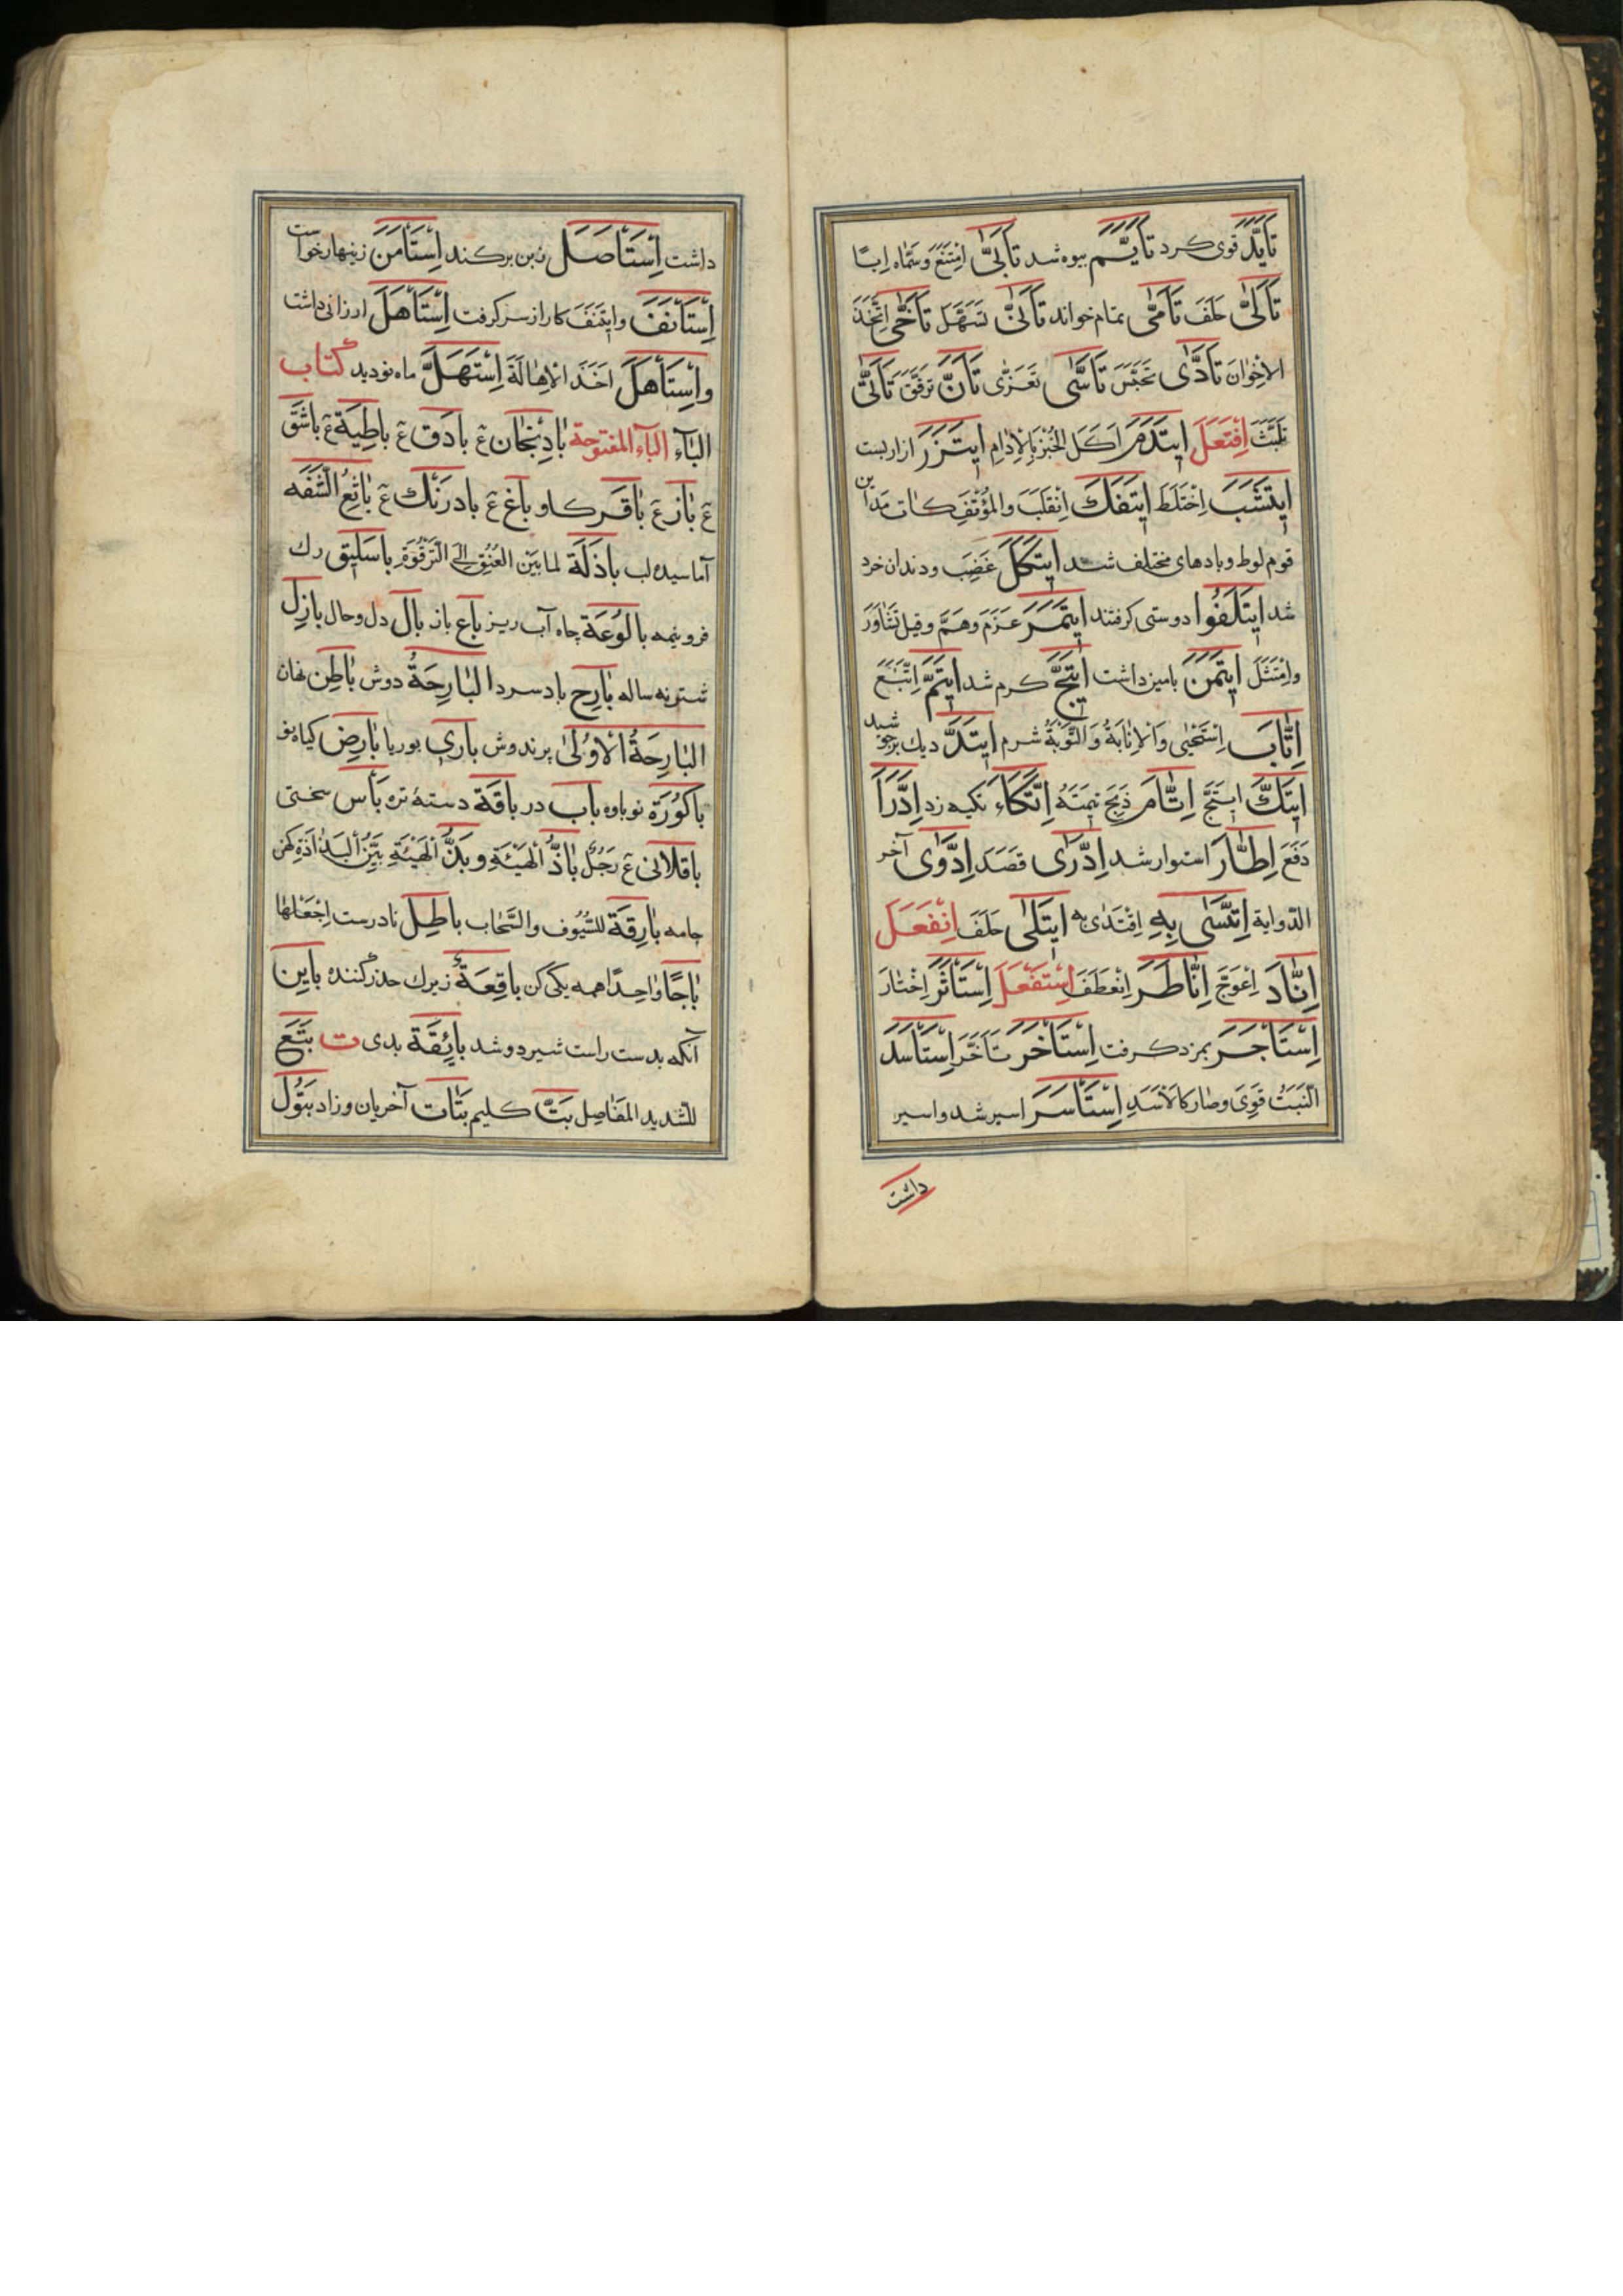 تَأَیَّدَ قوی کرد تَأَیَّمَ بیوه شد تَأَبَّیٰ اِمْتَنَعَ وسَمّاه اِبًا
تَأَلَّیٰ حَلَفَ تَأَمّٰی بنام خواند تَأَتّیٰ تَسَهَّلَ تَأَخّٰی اِتَّخَذَ
الاِخْوانَ تَأَدّٰی تَأَسّٰی تَعَزّٰی تَأَنَّ تَرَفَّقَ
تَلَبَّثَ اِفْتَعَلَ ایتَدَمَ اَکَلَ الخُبْزَ بِالاِدٰامِ ایتَزَرَ ازار بست
ایتَشَبَ اِخْتَلَطَ ایتَفَكَ اِنْقَلَبَ والمُؤْتَفِکات مَداین
قوم لوط وبادهای مختلف شد ایتَکَلَ غَضِبَ ودندان خرد
شد ایتَلَفُوا دوستی کرفتند ایتَمَرَ عَزَمَ وهَمَّ وقیل تَشٰاوَرَ
واِمْتَثَلَ ایتَمَنَ بامین داشت ایتَجَّ کرم شد ایتَمَّ اِتَّبَعَ
اِتّٰابَ اِسْتَحْیٰی وَالاِنٰابَةُ وَالتَّوْبَةُ شرم دیك برجوشید
ایتَكَّ اِتّٰامَ ذَبَحَ اِتَّکَاءَ تکیه زد اِدَّرَأَ
دَفَعَ اِطّٰارَ استوار شد اِدَّرٰی قَصَدَ اِدَّوٰی آخر
الدوایة اِتَّسٰی بِهِ اِقْتَدٰی به ایتَلٰی حَلَفَ اِنْفَعَلَ
اِنّٰادَ اِعْوَجَّ اِنّٰاطَرَ اِنْعَطَفَ اِسْتَفْعَلَ اِسْتَأْثَرَ اِخْتٰارَ
اِسْتَأْجَرَ بمزد کرفت اِسْتَأْخَرَ تَأَخَّرَ اِسْتَأْسَدَ
النَّبَتُ قَوِیَ وصٰار کالاَسَدِ اِسْتَأْسَرَ اسیر شد واسیر
داشت
داشت اِسْتَأْصَلَ زبن برکند اِسْتَأْمَنَ زینهار خواست
اِسْتَأْنَفَ وایتَنَفَ کار از سر کرفت اِسْتَأْهَلَ ارزانی داشت
واِسْتَأْهَلَ اَخَذَ الاِهٰالَةَ اِسْتَهَلَّ ماه نو دید کتاب
البٰآء البٰآء المفتوحة بٰادِنْجٰان عٓ بادَق عٓ باطِیَة عٓ باشَق
عٓ بٰاز عٓ بٰاقَر کاو باغ عٓ بادرَنْك عٓ بٰاثِعُ الشَّفَه
آماسیده لب باذَلَة لما بَیْنَ العُنُقِ اِلَی التَّرْقُوَةِ باسَلیق رك
فرونیمه بالُوعَة چاه آب ریز باع باز بال دل وحال بازِل
شتر نه ساله بٰارِح باد سرد البٰارِحَةُ دوش بٰاطِن نهان
البٰارِحَةُ الاُولٰی پرندوش باری بوریا بٰارِض کیاه نو
باکُورَة نوباوه باب در باقَة دستهٔ تره بَأْس سختی
باقلانی عٓ رَجُلٌ بٰاذُّ الهَیْئَةِ وبَذُّ الهَیْئَةِ بَیِّنُ البَذٰاذَةِ کهن
جامه بٰارِقَة للسُّیُوف والسَّحٰاب باطِل نادرست اِجْعَلْها
بٰاجًا وٰاحِدًا همه یکی کن باقِعَة زیرك حذر کننده بایِن
آنکه بدست راست شیر دوشد بائِقَة بدی ت بَتَع
للشّدید المفَاصِل بَتّ کلیم بَتٰات آخریان وزاد بَتُول